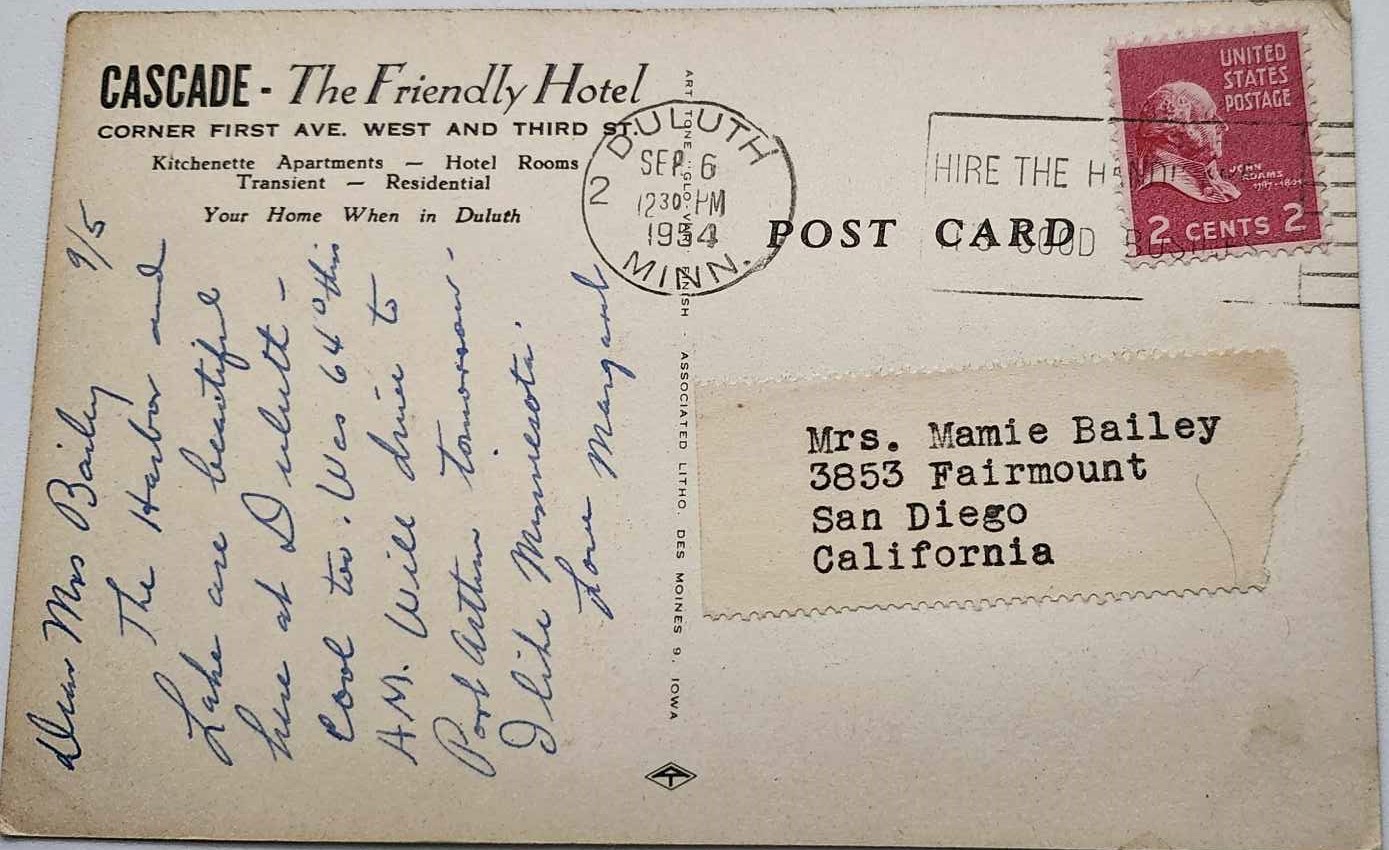 CASCADE - The Friendly Hotel
CORNER FIRST AVE. WEST AND THIRD ST.
Kitchenette Apartments — Hotel Rooms
Transient — Residential
Your Home When in Duluth
9/5
Dear Mrs Bailey
The Harbor and
Lake are beautiful
here at Duluth -
Cool too. Was 64° this
A.M. Will drive to
Port Arthur tomorrow -
I like Minnesota.
Love Margaret
ART TONE "GLO-VAR" FINISH - ASSOCIATED LITHO. DES MOINES 9, IOWA
DULUTH
SEP 6
2
12 30 PM
1954
MINN.
HIRE THE
GOOD BUSINESS
POST CARD
UNITED
STATES
POSTAGE
JOHN
ADAMS
1797-1801
2 CENTS 2
Mrs. Mamie Bailey
3853 Fairmount
San Diego
California